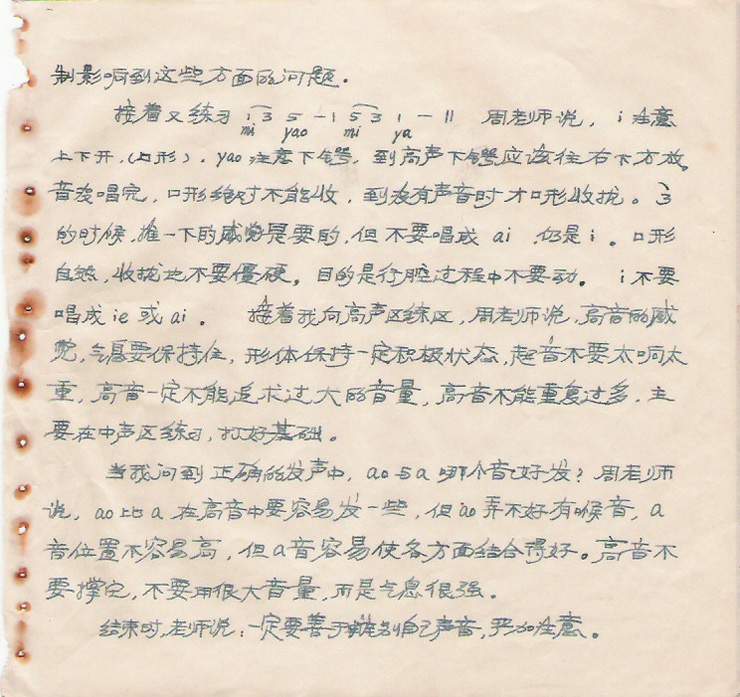 制影响到这些方面的问题。
接着又练习 i 3 5 - 1 5 3 1 - || 周老师说，i 注意
mi yao mi ya
上下开，(口形)，yao 注意下腭，到高声下腭应该往右下方放。
音没唱完，口形绝对不能收，到没有声音时才口形收拢。3
的时候，推一下的感觉是要的，但不要唱成 ai，仍是 i。口形
自然，收拢地不要僵硬。目的是行腔过程中不要动。i 不要
唱成 ie 或 ai。接着我向高声区练区，周老师说，高音的感
觉，气息要保持住，形体保持一定积极状态，起音不要太响太
重，高音一定不能追求过大的音量，高音不能重复过多，主
要在中声区练习，打好基础。
当我问到正确的发声中，ao 与 a 哪个音也好发？周老师
说，ao 比 a 在高音中要容易发一些，但 ao 弄不好有喉音，a
音位置不容易高，但 a 音容易使各方面结合得好。高音不
要撑它，不要用很大音量，而是气息很强。
结束时，老师说：一定要善于辨别自己声音，严加注意。